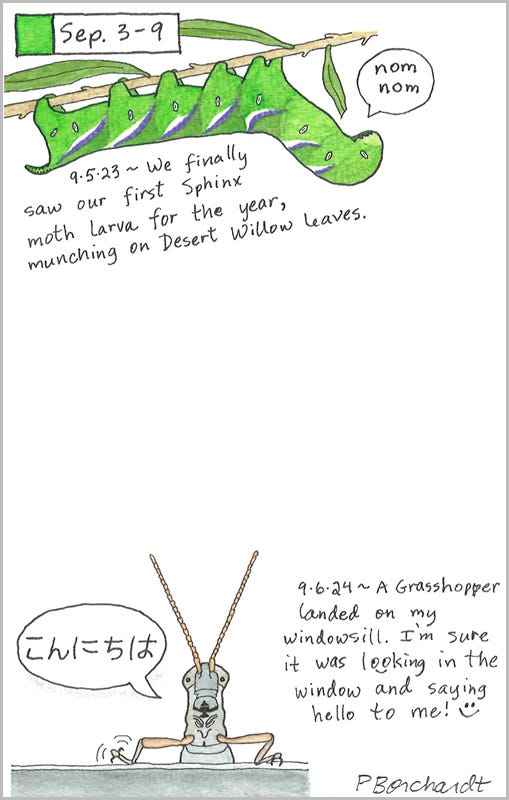 Sep. 3-9
nom
nom
9.5.23 ~ We finally
saw our first Sphinx
moth larva for the year,
munching on Desert Willow leaves.
こんにちは
9.6.24 ~ A Grasshopper
landed on my
windowsill. I'm sure
it was looking in the
window and saying
hello to me!
P Borchardt